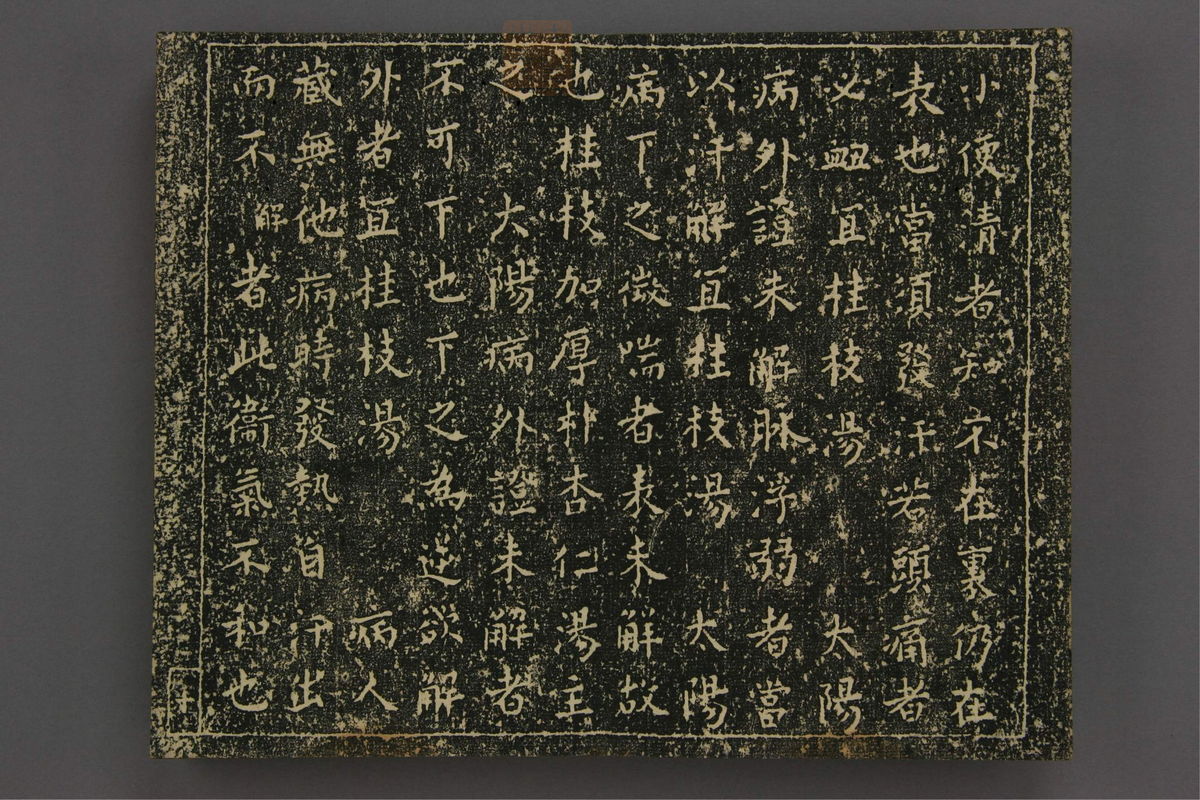 小便清者知不在裏仍在
表也當須發汗若頭痛者
必衄宜桂枝湯 太陽
病外證未解脉浮弱者當
以汗解宜桂枝湯 太陽
病下之微喘者表未解故
也桂枝加厚朴杏仁湯主
之 大陽病外證未解者
不可下也下之為逆欲解
外者宜桂枝湯 病人
藏無他病時發熱自汗出
而不解者此衞氣不和也